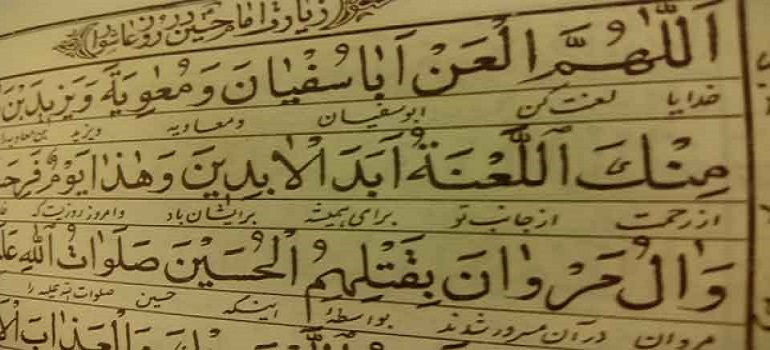 زیارت امام حسین در روز عاشورا
اَللّٰهُمَّ الْعَنْ اَبٰا سُفْيٰانَ وَمُعٰوِيَةَ وَيَزيدَ بْنَ
خدایا لعنت کن ابوسفیان ومعاویه ویزید بن معاویه
مِنْكَ اَللَّعْنَةُ اَبَدَ الْاٰبِدِينَ وَهٰذٰا يَوْمٌ فَرِحَ
از رحمت از جانب تو برای همیشه برایشان باد وامروز روزیست که
وَاٰلُ مَرْوٰانَ بِقَتْلِهِمُ الْحُسَيْنَ صَلَوٰاتُ اللّٰهِ
مروان در آن مسرور شدند بواسطهٔ اینکه حسین صلوات الله علیه را